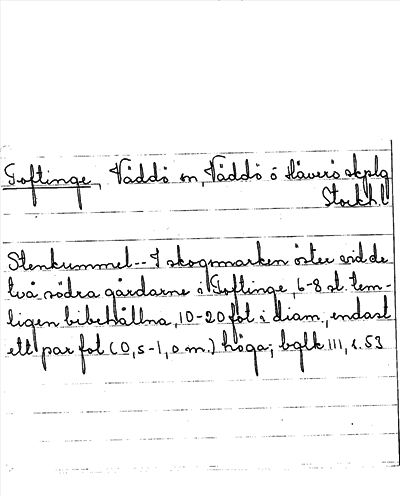 Toftinge, Väddö sn, Väddö o Häverö skplg
Stockh.l
Stenkummel -- I skogsmarken öster vid de
två södra gårdarne i Toftinge, 6-8 st. tem-
ligen bibehållna, 10-20 fot i diam., endast
ett par fot (0,5-1,0 m.) höga; bglk III, s. 53